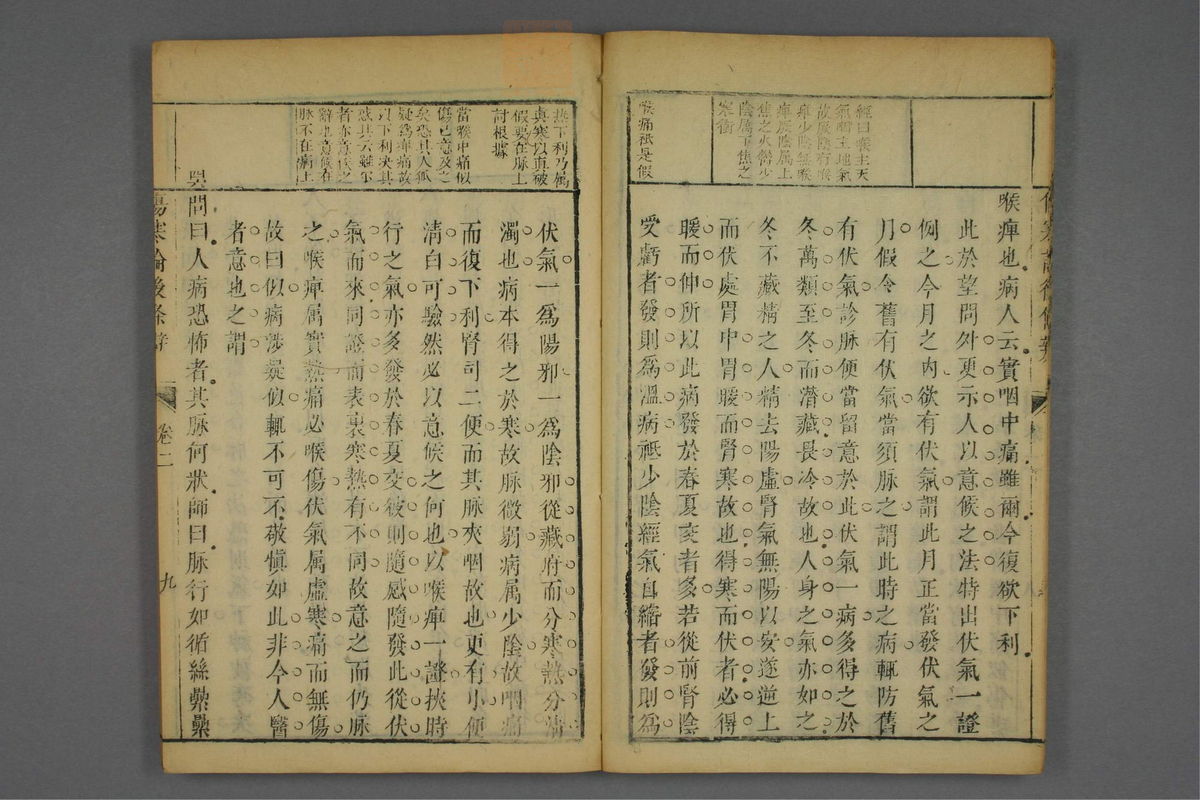 喉痺也病人云實咽中痛雖爾今復欲下利
此於望問外更示人以意候之法特出伏氣一證
例之今月之內欲有伏氣謂此月正當發伏氣之
月假令舊有伏氣當須脉之謂此時之病輒防舊
有伏氣診脉便當留意於此伏氣一病多得之於
冬萬類至冬而潛藏畏冷故也人身之氣亦如之
冬不藏精之人精去陽虛腎氣無陽以安遂逆上
而伏處胃中胃暖而腎寒故也得寒而伏者必得
暖而伸所以此病發於春夏交者多若從前腎陰
受虧者發則為溫病祗少陰經氣自縮者發則為
經曰喉主天
氣咽主地氣
故厥陰有喉
痺少陰無喉
痺厥陰属上
焦之火少
陰属下焦之
寒
喉痛祗是假
伏氣一爲陽邪一爲陰邪從藏府而分寒熱分清
濁也病本得之於寒故脉微弱病属少陰故咽痛
而復下利腎司二便而其脉夾咽故也更有小便
清白可驗然必以意候之何也以喉痺一證挾時
行之氣亦多發於春夏交彼則隨感隨發此從伏
氣而來同證而表裏寒熱有不同故意之而仍脉
之喉痺属實熱痛必喉傷伏氣属虛寒痛而無傷
故曰似病涉疑似輒不可不敬慎如此非今人醫
者意也之謂
問曰人病恐怖者其脉何狀師曰脉行如循絲纍纍
熱下利乃属
眞寒以眞破
假要在脉上
討根據
當喉中痛似
傷已意及之
矣恐其人狐
疑爲痺痛故
以下利决其
惑其云雖爾
者亦意候之
辭也意候在
脉不在病上
傷寒論後條辨
卷二
九